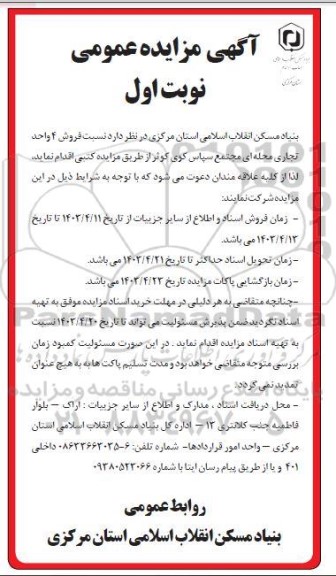 آگهی مزایده عمومی
نوبت اول
بنیاد مسکن انقلاب اسلامی استان مرکزی در نظر دارد نسبت فروش ۴ واحد
تجاری محله ای مجتمع سپاس کوی کوثر از طریق مزایده کتبی اقدام نماید،
لذا از کلیه علاقه مندان دعوت می شود که با توجه به شرایط ذیل در این
مزایده شرکت نمایند:
- زمان فروش اسناد و اطلاع از سایر جزییات از تاریخ ۱۴۰۳/۴/۱۱ تا تاریخ
۱۴۰۳/۴/۱۳ می باشد.
- زمان تحویل اسناد حداکثر تا تاریخ ۱۴۰۳/۴/۲۱ می باشد.
- زمان بازگشایی پاکات مزایده تاریخ ۱۴۰۳/۴/۲۳ می باشد.
- چنانچه متقاضی به هر دلیلی در مهلت خرید اسناد مزایده موفق به تهیه
اسناد نگردید ضمن پذیرش مسئولیت می تواند تا تاریخ ۱۴۰۳/۴/۲۰ نسبت
به تهیه اسناد مزایده اقدام نماید. در این صورت مسئولیت کمبود زمان
بررسی متوجه متقاضی خواهد بود و مدت تسلیم پاکت ها به به هیچ عنوان
تمدید نمی گردد.
- محل دریافت اسناد ، مدارک و اطلاع از سایر جزییات : اراک – بلوار
فاطمیه جنب کلانتری ۱۳ – اداره کل بنیاد مسکن انقلاب اسلامی استان
مرکزی – واحد امور قراردادها- شماره تلفن: ۶-۰۸۶۳۳۶۶۳۰۳۵ داخلی
۴۰۱ و یا از طریق پیام رسان ایتا با شماره ۰۹۳۸۰۵۲۳۰۶۶
روابط عمومی
بنیاد مسکن انقلاب اسلامی استان مرکزی